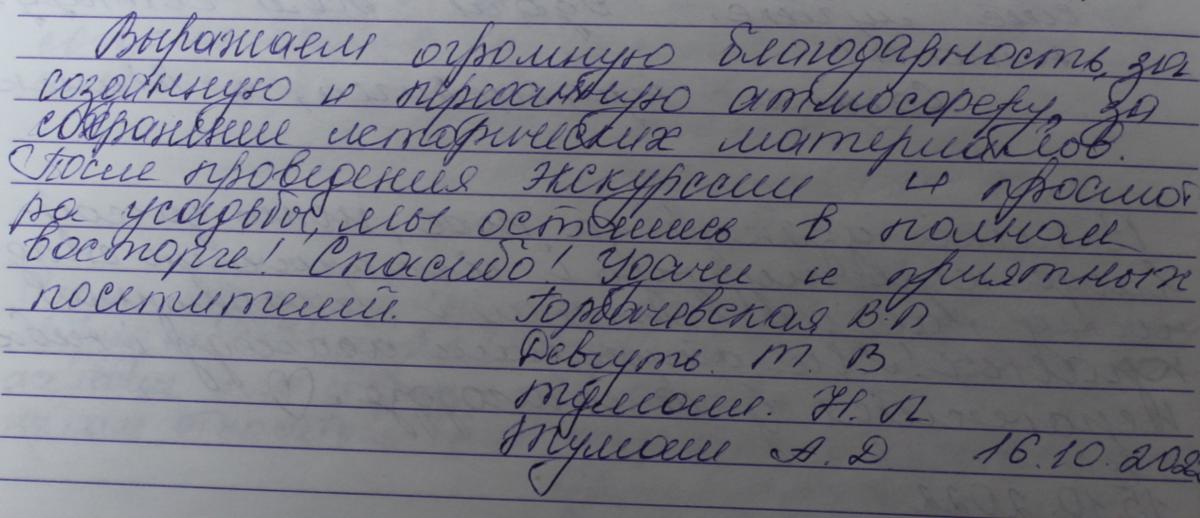 Выражаем огромную благодарность, за
созданную и переданную атмосферу, за
сохранение исторических материалов.
После проведения экскурсии и просмот
ра усадьбы, мы остались в полном
восторге! Спасибо! Удачи и приятных
посетителей. Горбачевская В.П
Девгуть. Т. В
Тумаш. Н. П
Тумаш А. Д 16.10.202